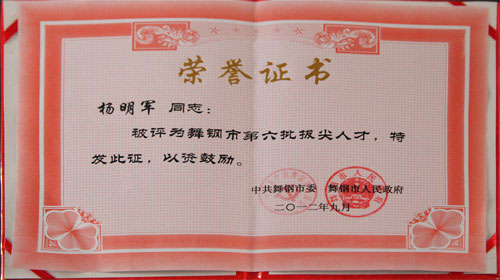 荣誉证书
杨明军 同志：
被评为舞钢市第六批拔尖人才，特
发此证，以资鼓励。
中共舞钢市委 舞钢市人民政府
二〇一二年九月